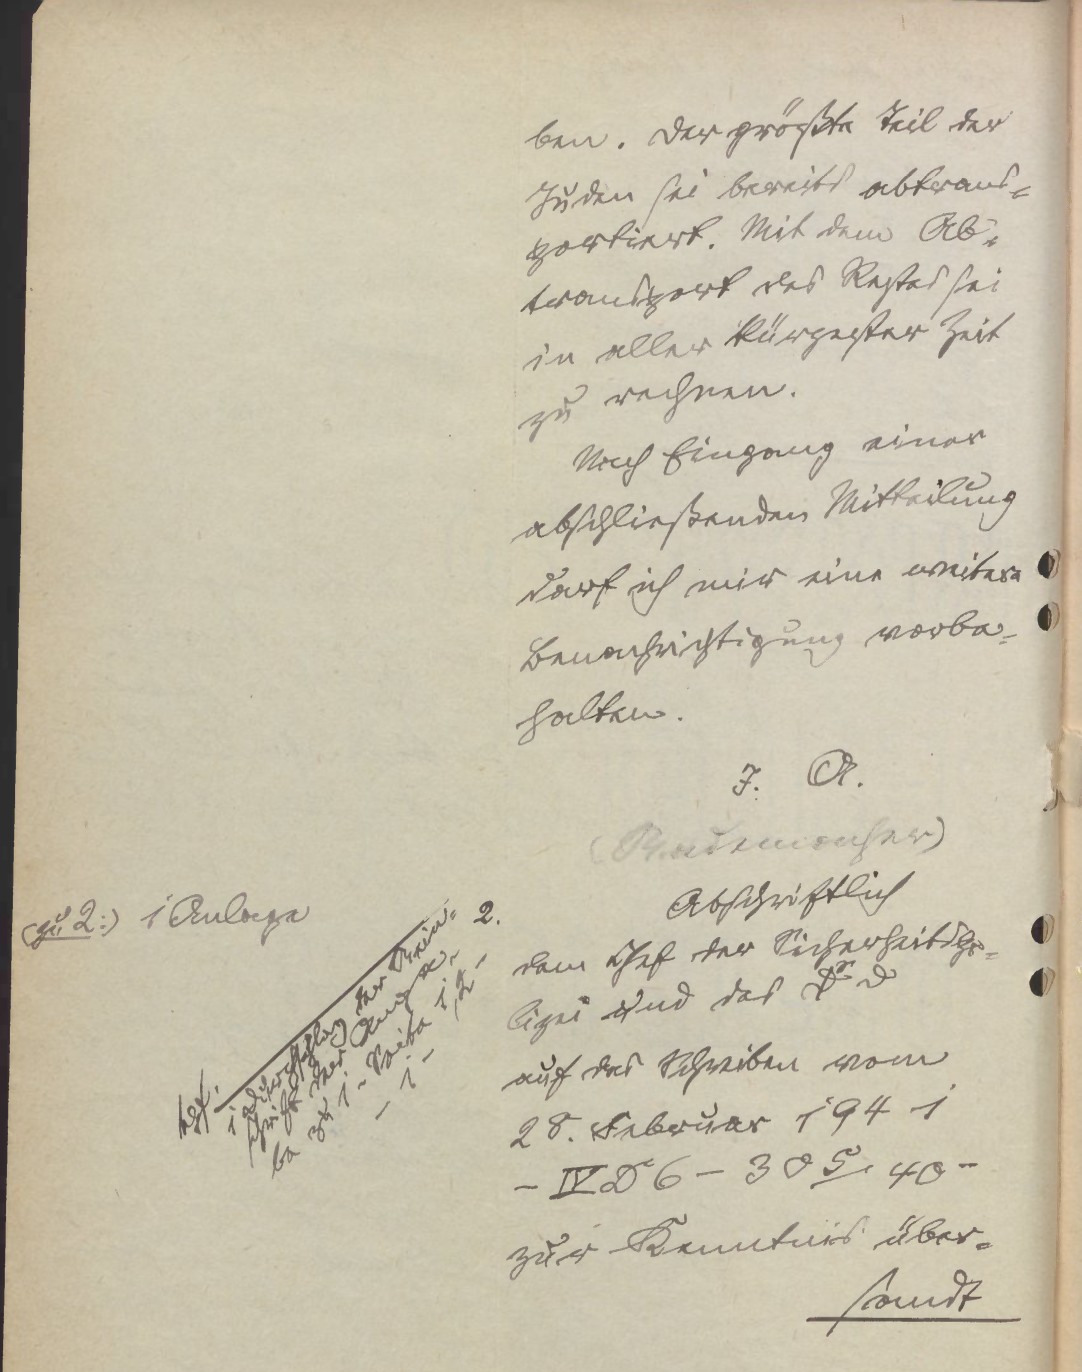 ben. Der größte Teil der
Juden sei bereits abtrans=
portiert. Mit dem Ab=
transport des Restes sei
in aller kürzester Zeit
zu rechnen.
Nach Eingang einer
abschließenden Mitteilung
darf ich mir eine weitere
Benachrichtigung vorbe=
halten.
J. A.
(Rademacher)
Abschriftlich
2.
dem Chef der Sicherheitspo=
lizei und des SD
auf das Schreiben vom
28. Februar 1941
- IV D 6 - 305. 40 -
zur Kenntnis über=
sandt
(zu 2:) 1 Anlage
1 Durchschlag der Rein=
schrift der Anga=
be zu 1 - Seite 1,2 -
- 1 -